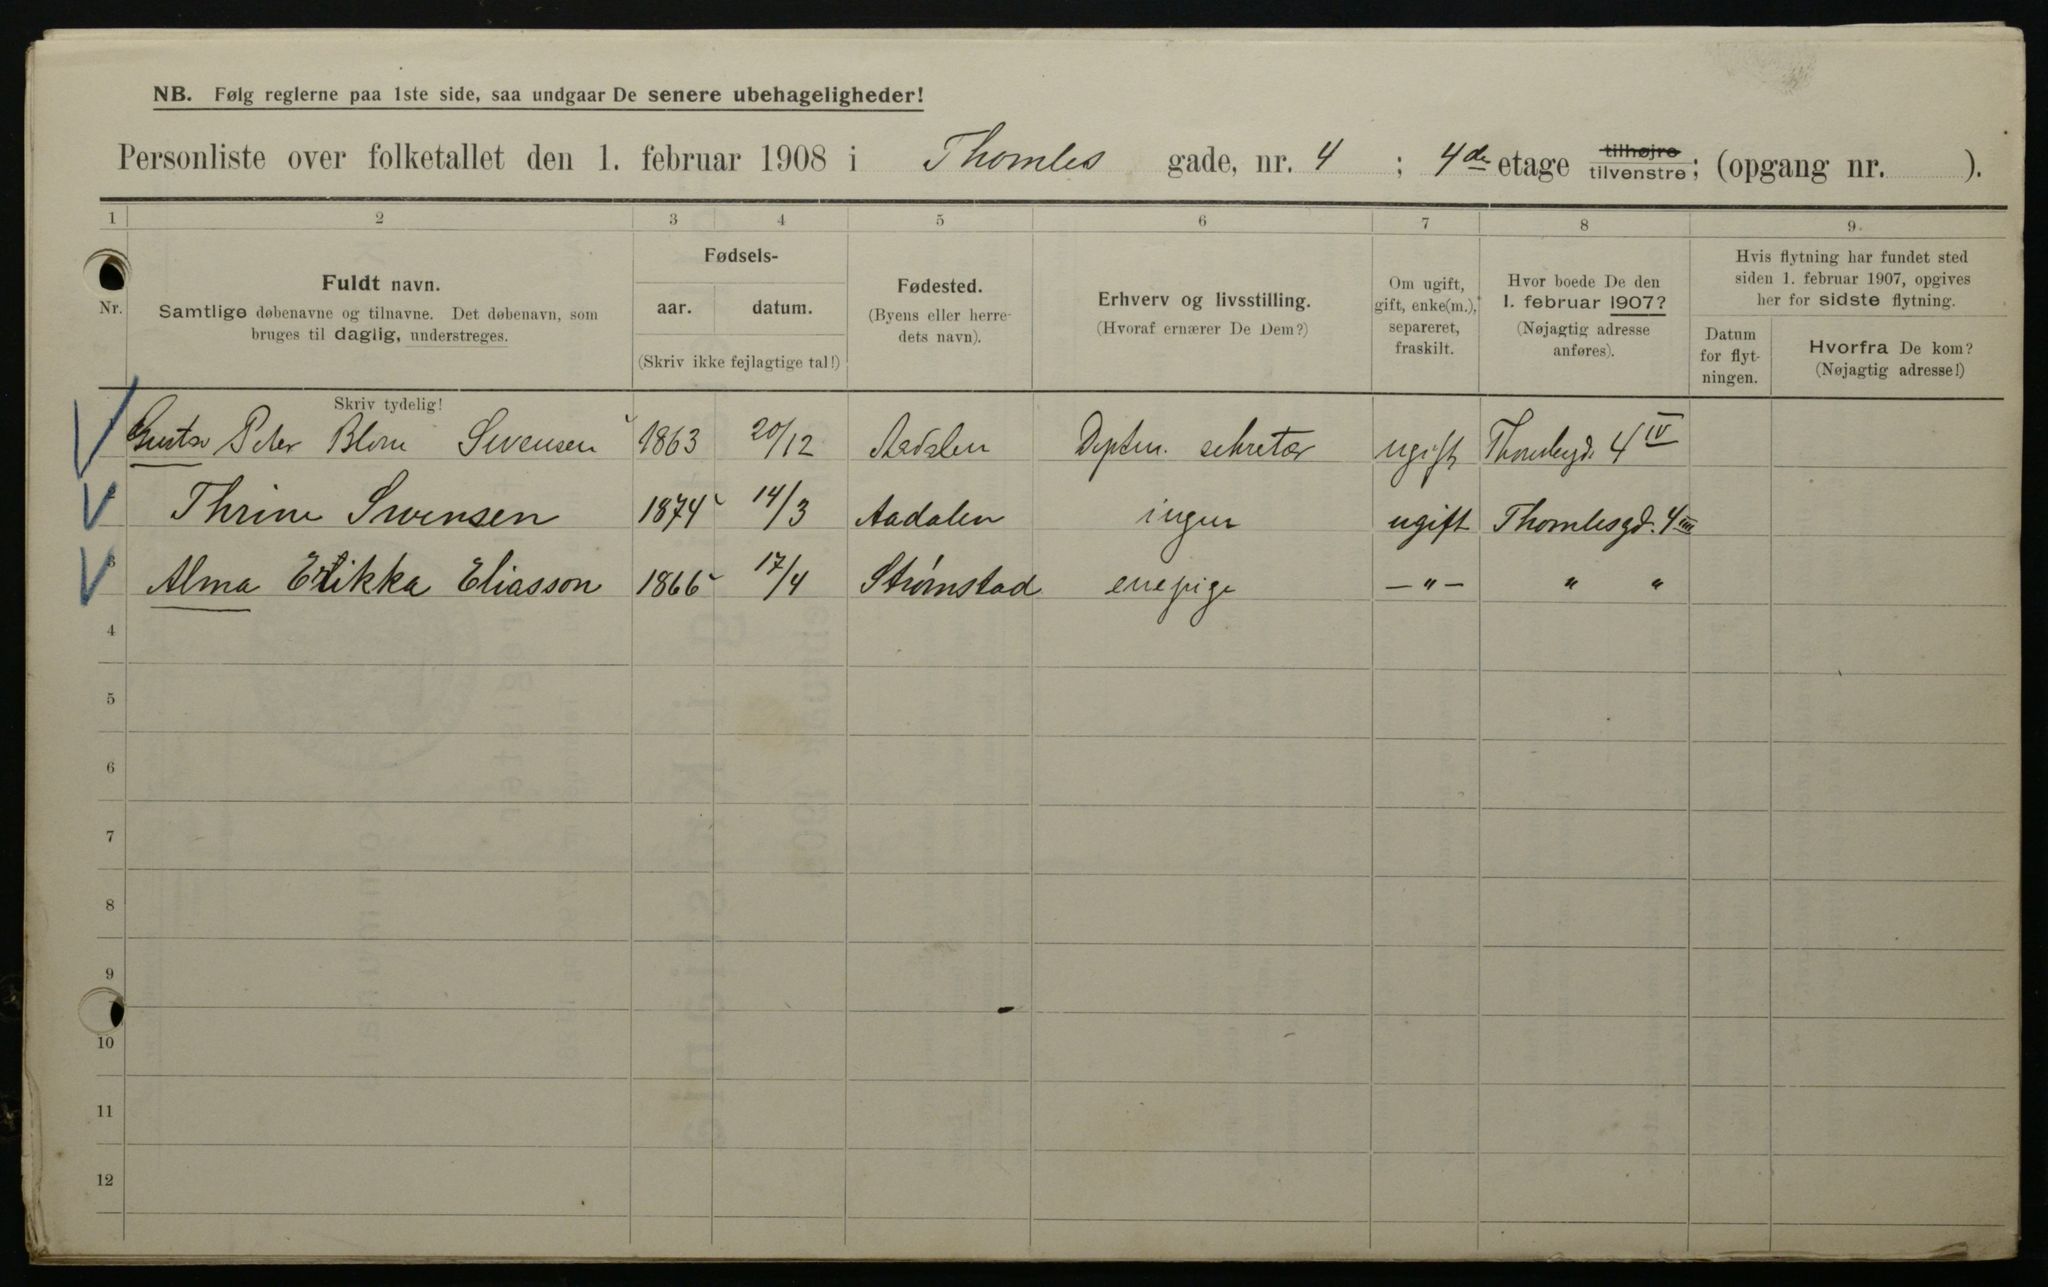 NB. Følg reglerne paa 1ste side, saa undgaar De senere ubehageligheder!
Personliste over folketallet den 1. februar 1908 i Thomles gade, nr. 4 ; 4de etage tilhøjre tilvenstre; (opgang nr. ).
1 2 3 4 5 6 7 8 9
Nr.
Fuldt navn.
Samtlige døbenavne og tilnavne. Det døbenavn, som
bruges til daglig, understreges.
Fødsels-
aar. datum.
(Skriv ikke fejlagtige tal!)
Fødested.
(Byens eller herre-
dets navn).
Erhverv og livsstilling.
(Hvoraf ernærer De Dem?)
Om ugift,
gift, enke(m.),
separeret,
fraskilt.
Hvor boede De den
1. februar 1907?
(Nøjagtig adresse
anføres).
Hvis flytning har fundet sted
siden 1. februar 1907, opgives
her for sidste flytning.
Datum
for flyt-
ningen.
Hvorfra De kom?
(Nøjagtig adresse!)
Skriv tydelig!
Gustav Peter Blom Swensen 1863 20/12 Aadalen Deptm. sekretær ugift Thomlesgd. 4 IV
Thrine Swensen 1874 14/3 Aadalen ingen ugift Thomlesgd. 4
3 Alma Erikka Eliasson 1866 17/4 Strømstad enepige — " — " "
4
5
6
7
8
9
10
11
12